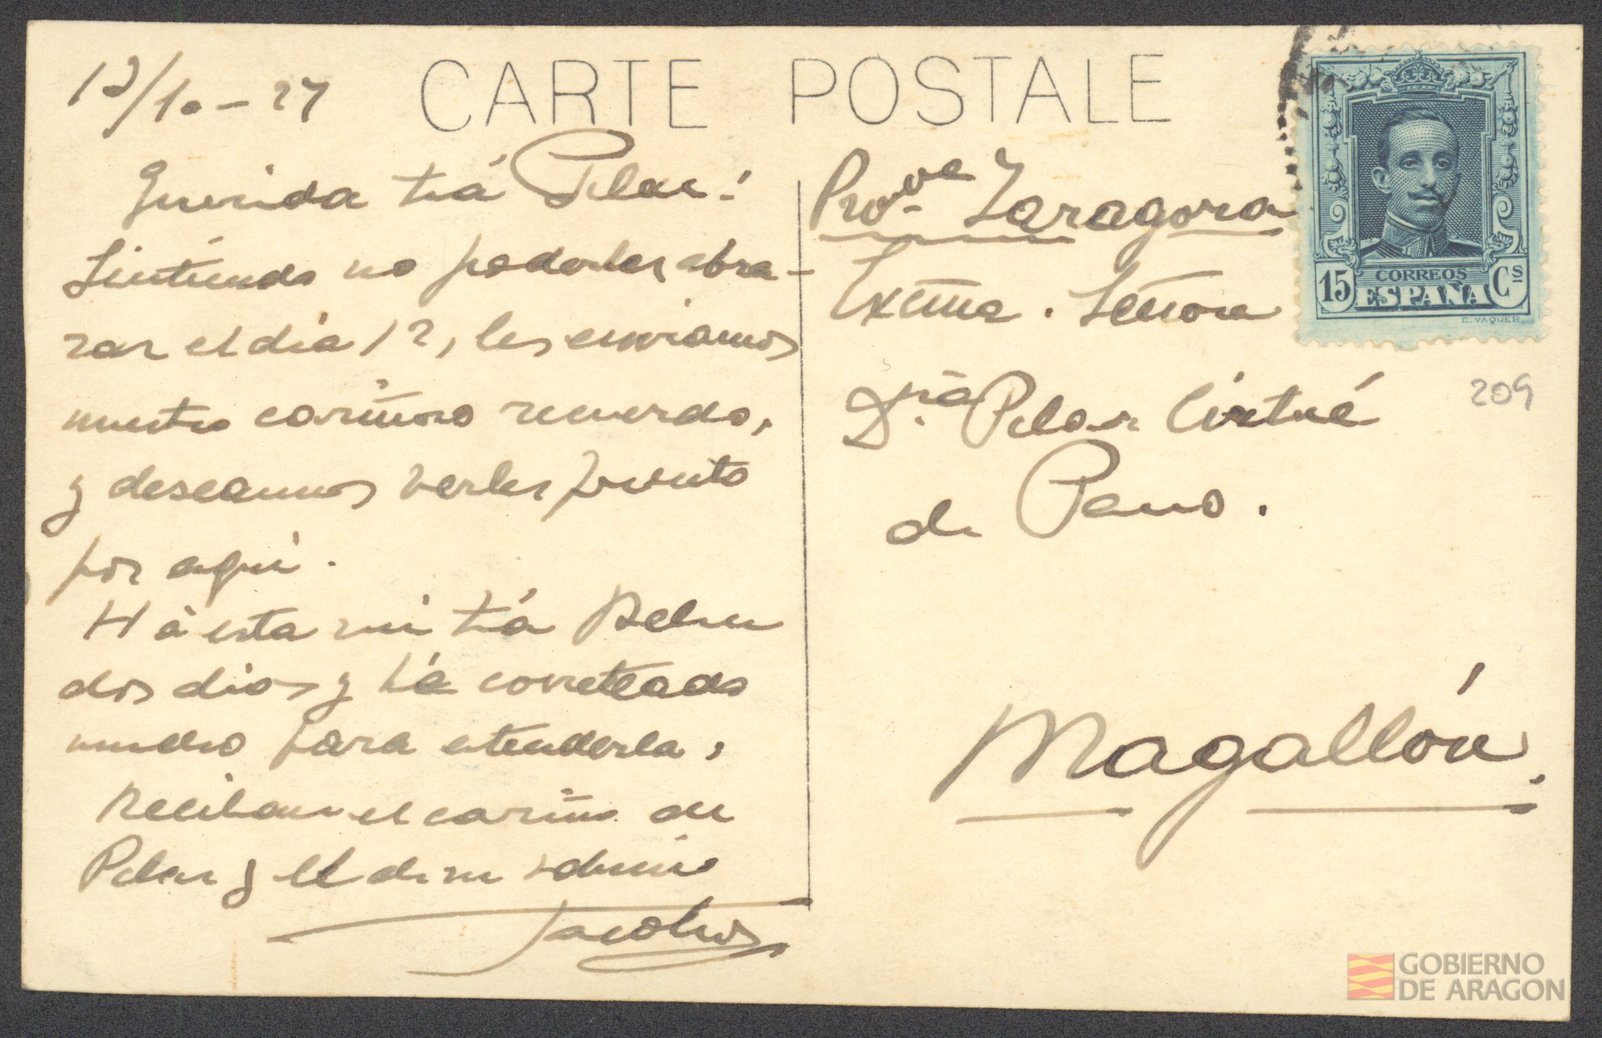 12/10-27
CARTE POSTALE
Querida tiá Pilar!
Sintiendo no poderles abra-
zar el dia 12, les enviamos
nuestro cariñoso recuerdo,
y deseamos verles pronto
por aqui.
Há esta mi tiá
dos dias y há correteado
mucho para atenderla,
Reciban el cariño de
Pilar y el de su sobrino
Jacobo
Prov.ve Zaragoza
Excma. Señora
Dña Pilar Cistué
de Pano.
Magallón.
15 CORREOS Cs
ESPAÑA
E. VAQUER.
209
GOBIERNO
DE ARAGON